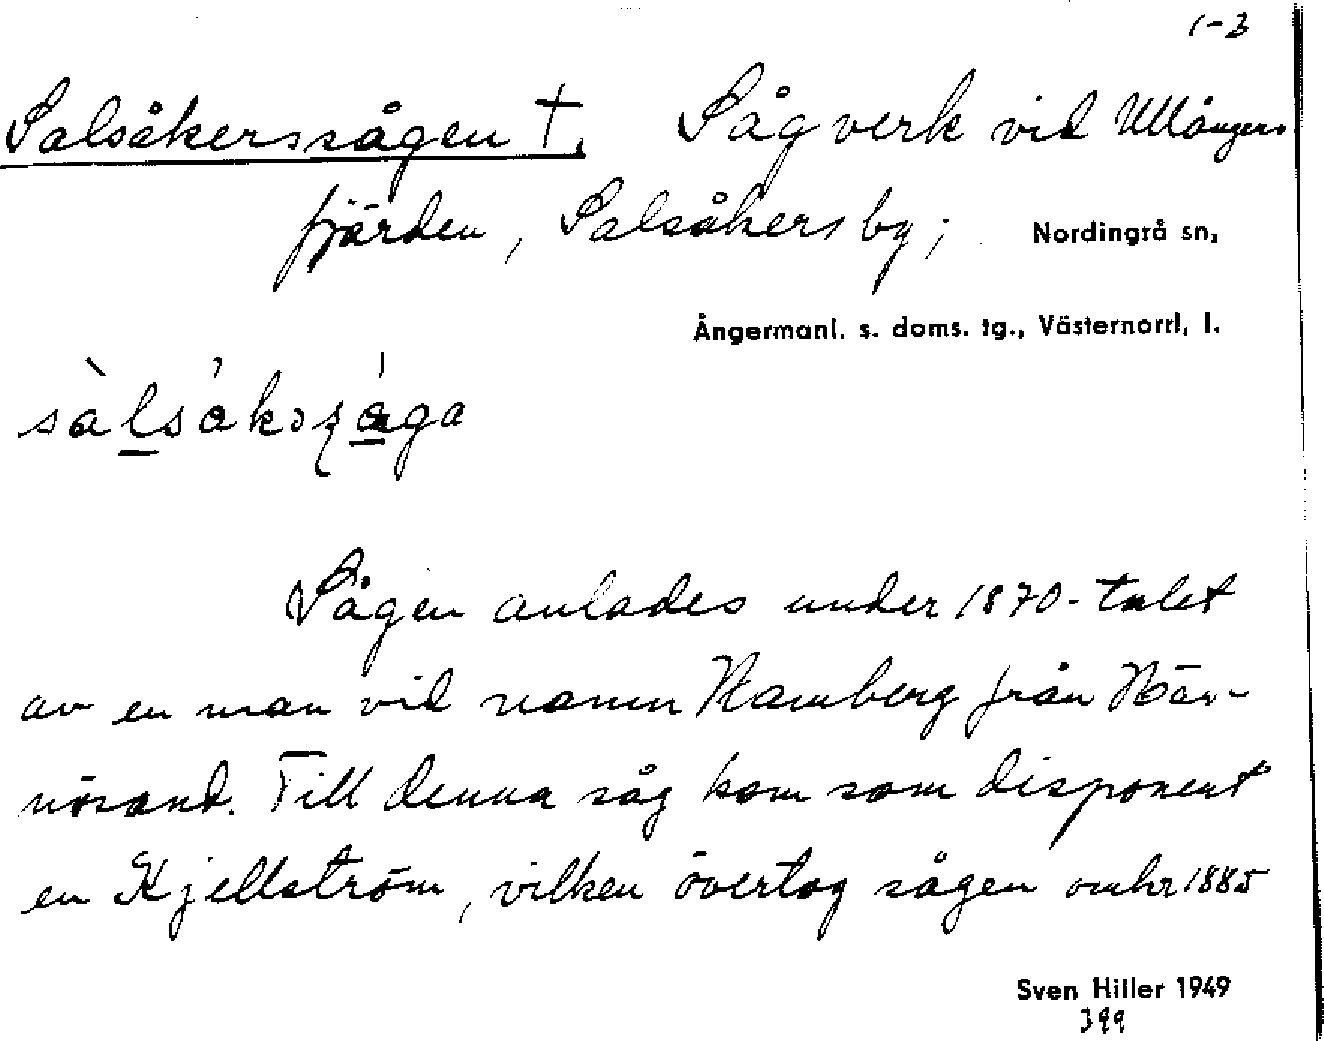 1-3
Salsåkerssågen †. Sågverk vid Ullångers
fjärden, Salsåkers by; Nordingrå sn,
Ångermanl. s. doms. tg., Västernorrl, l.
Sågen anlades under 1870-talet
av en man vid namn Hamberg från Här-
nösand. Till denna såg kom som disponent
en Kjellström, vilken övertog sågen omkr 1885
Sven Hiller 1949
399